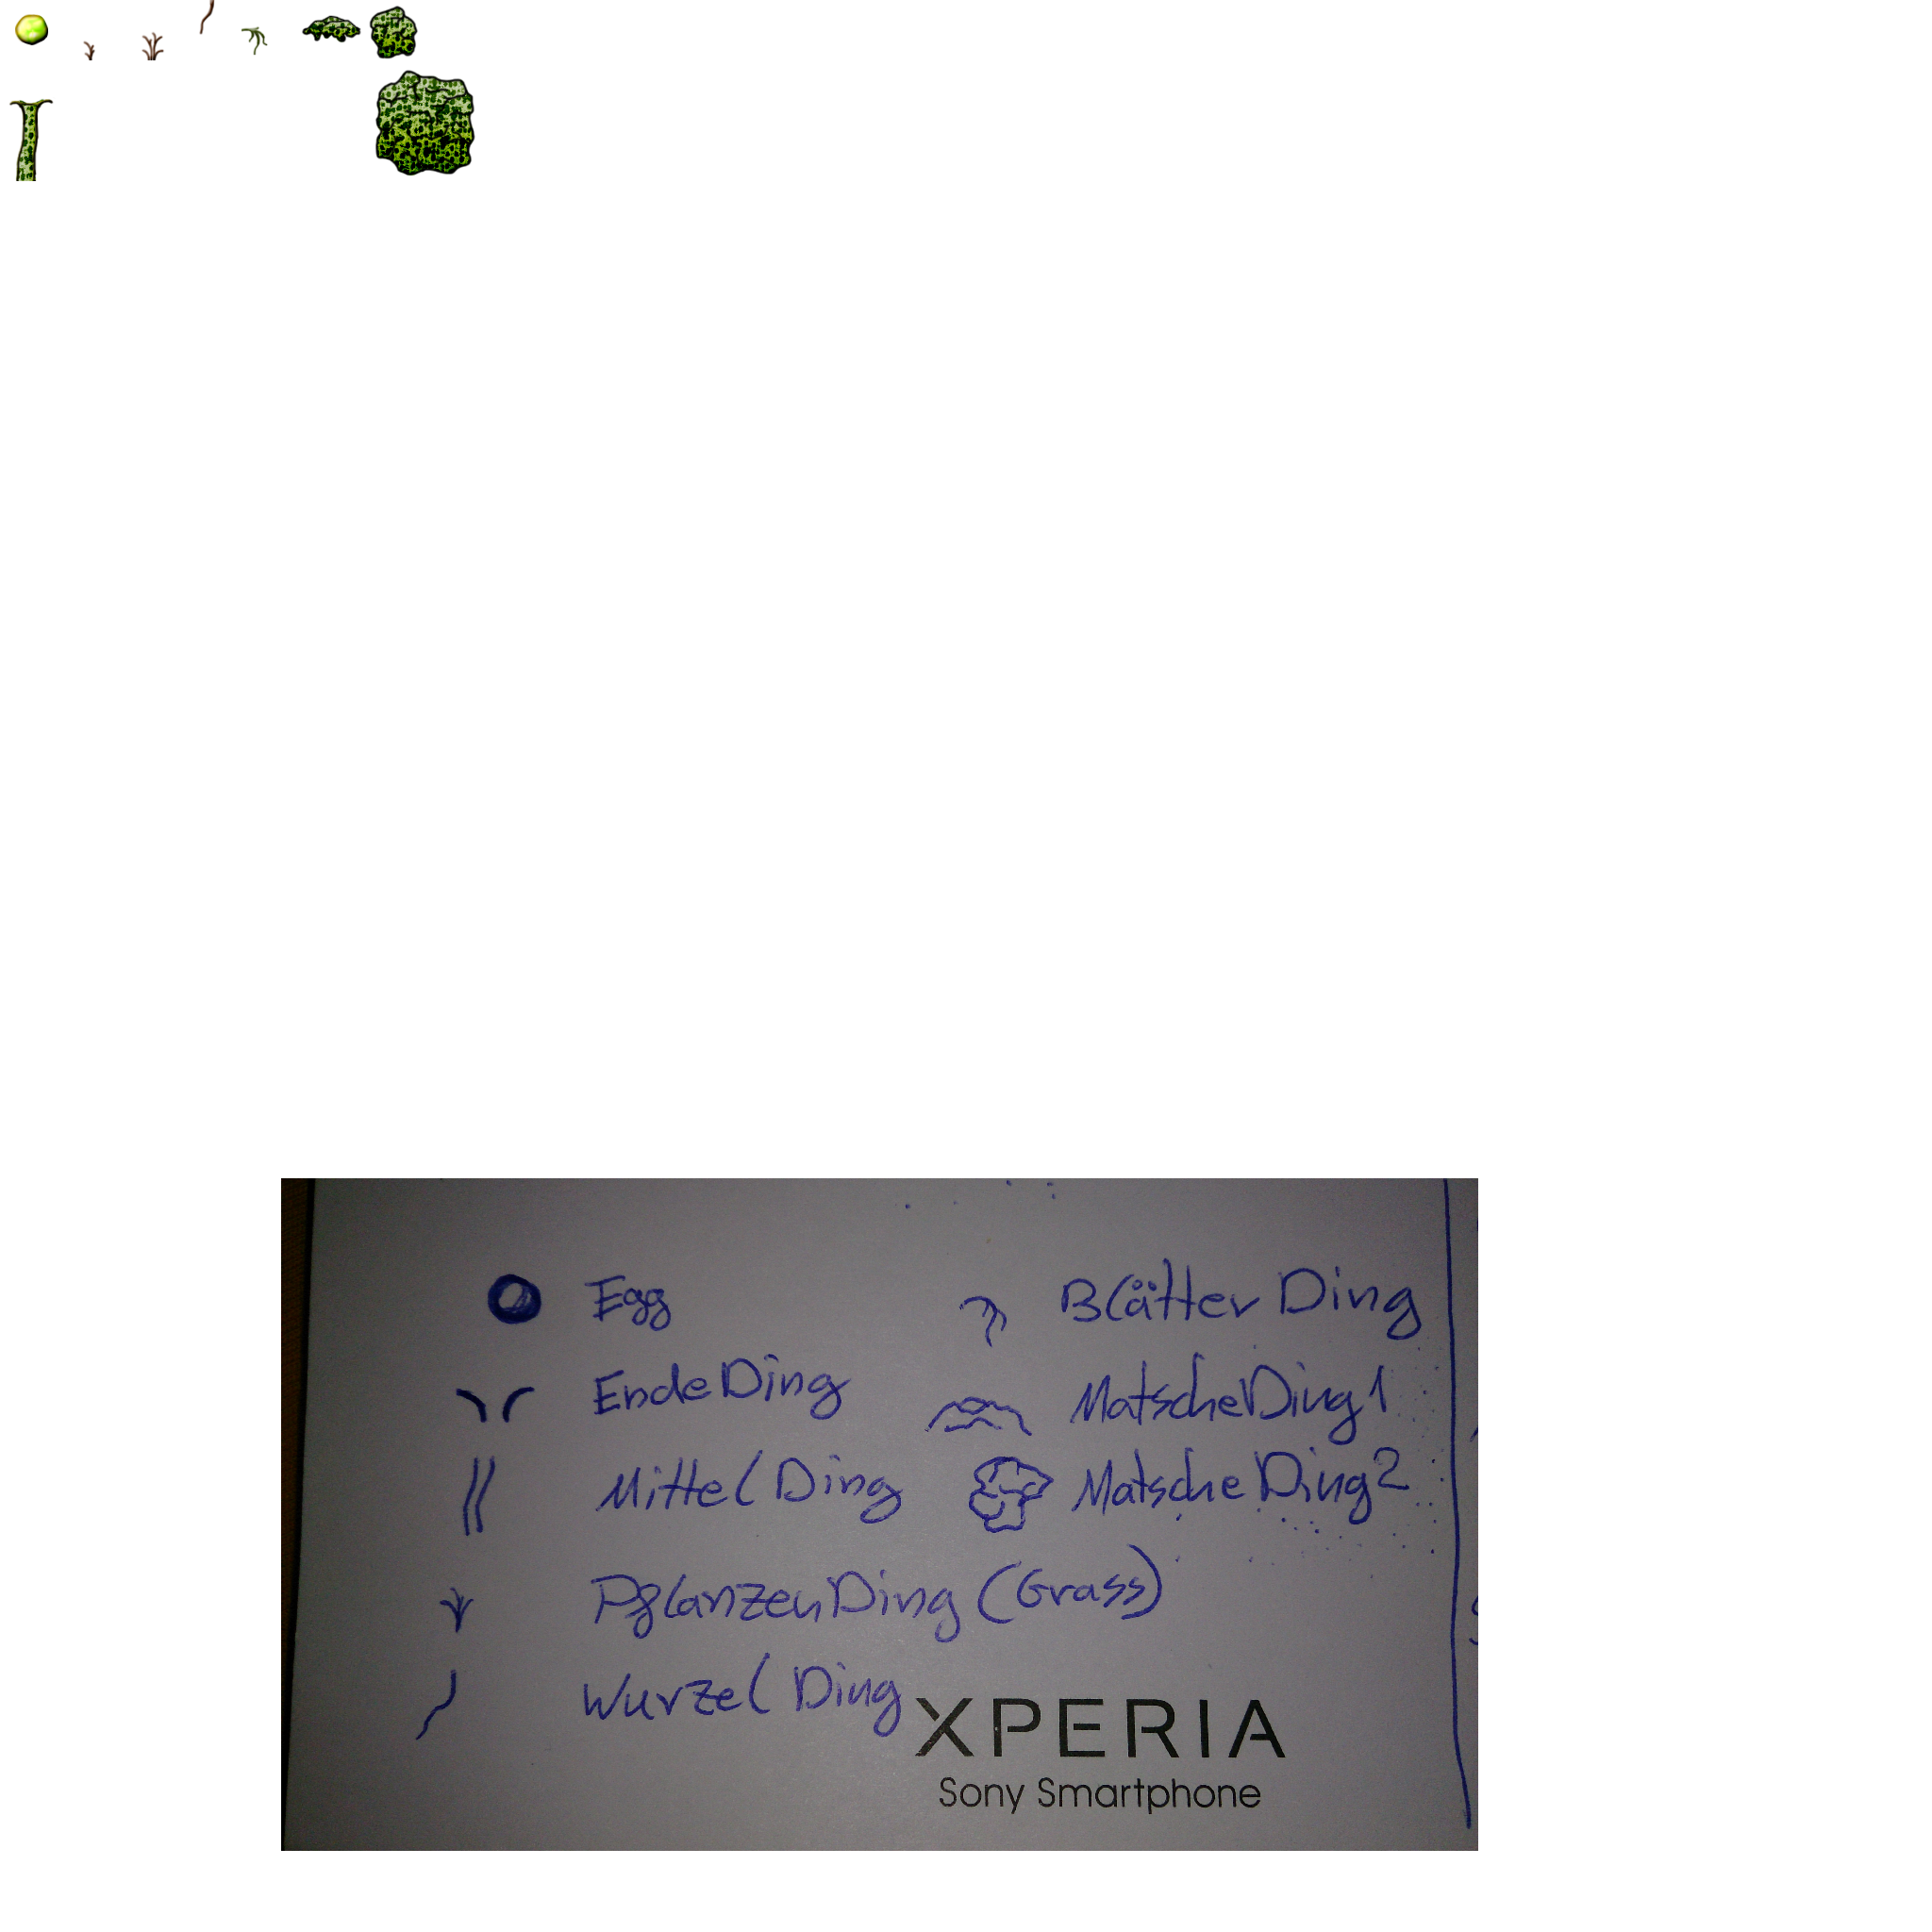 Egg
EndeDing
Mittel Ding
PflanzenDing (Grass)
Wurzel Ding
Blätter Ding
MatscheDing1
Matsche Ding2
XPERIA
Sony Smartphone